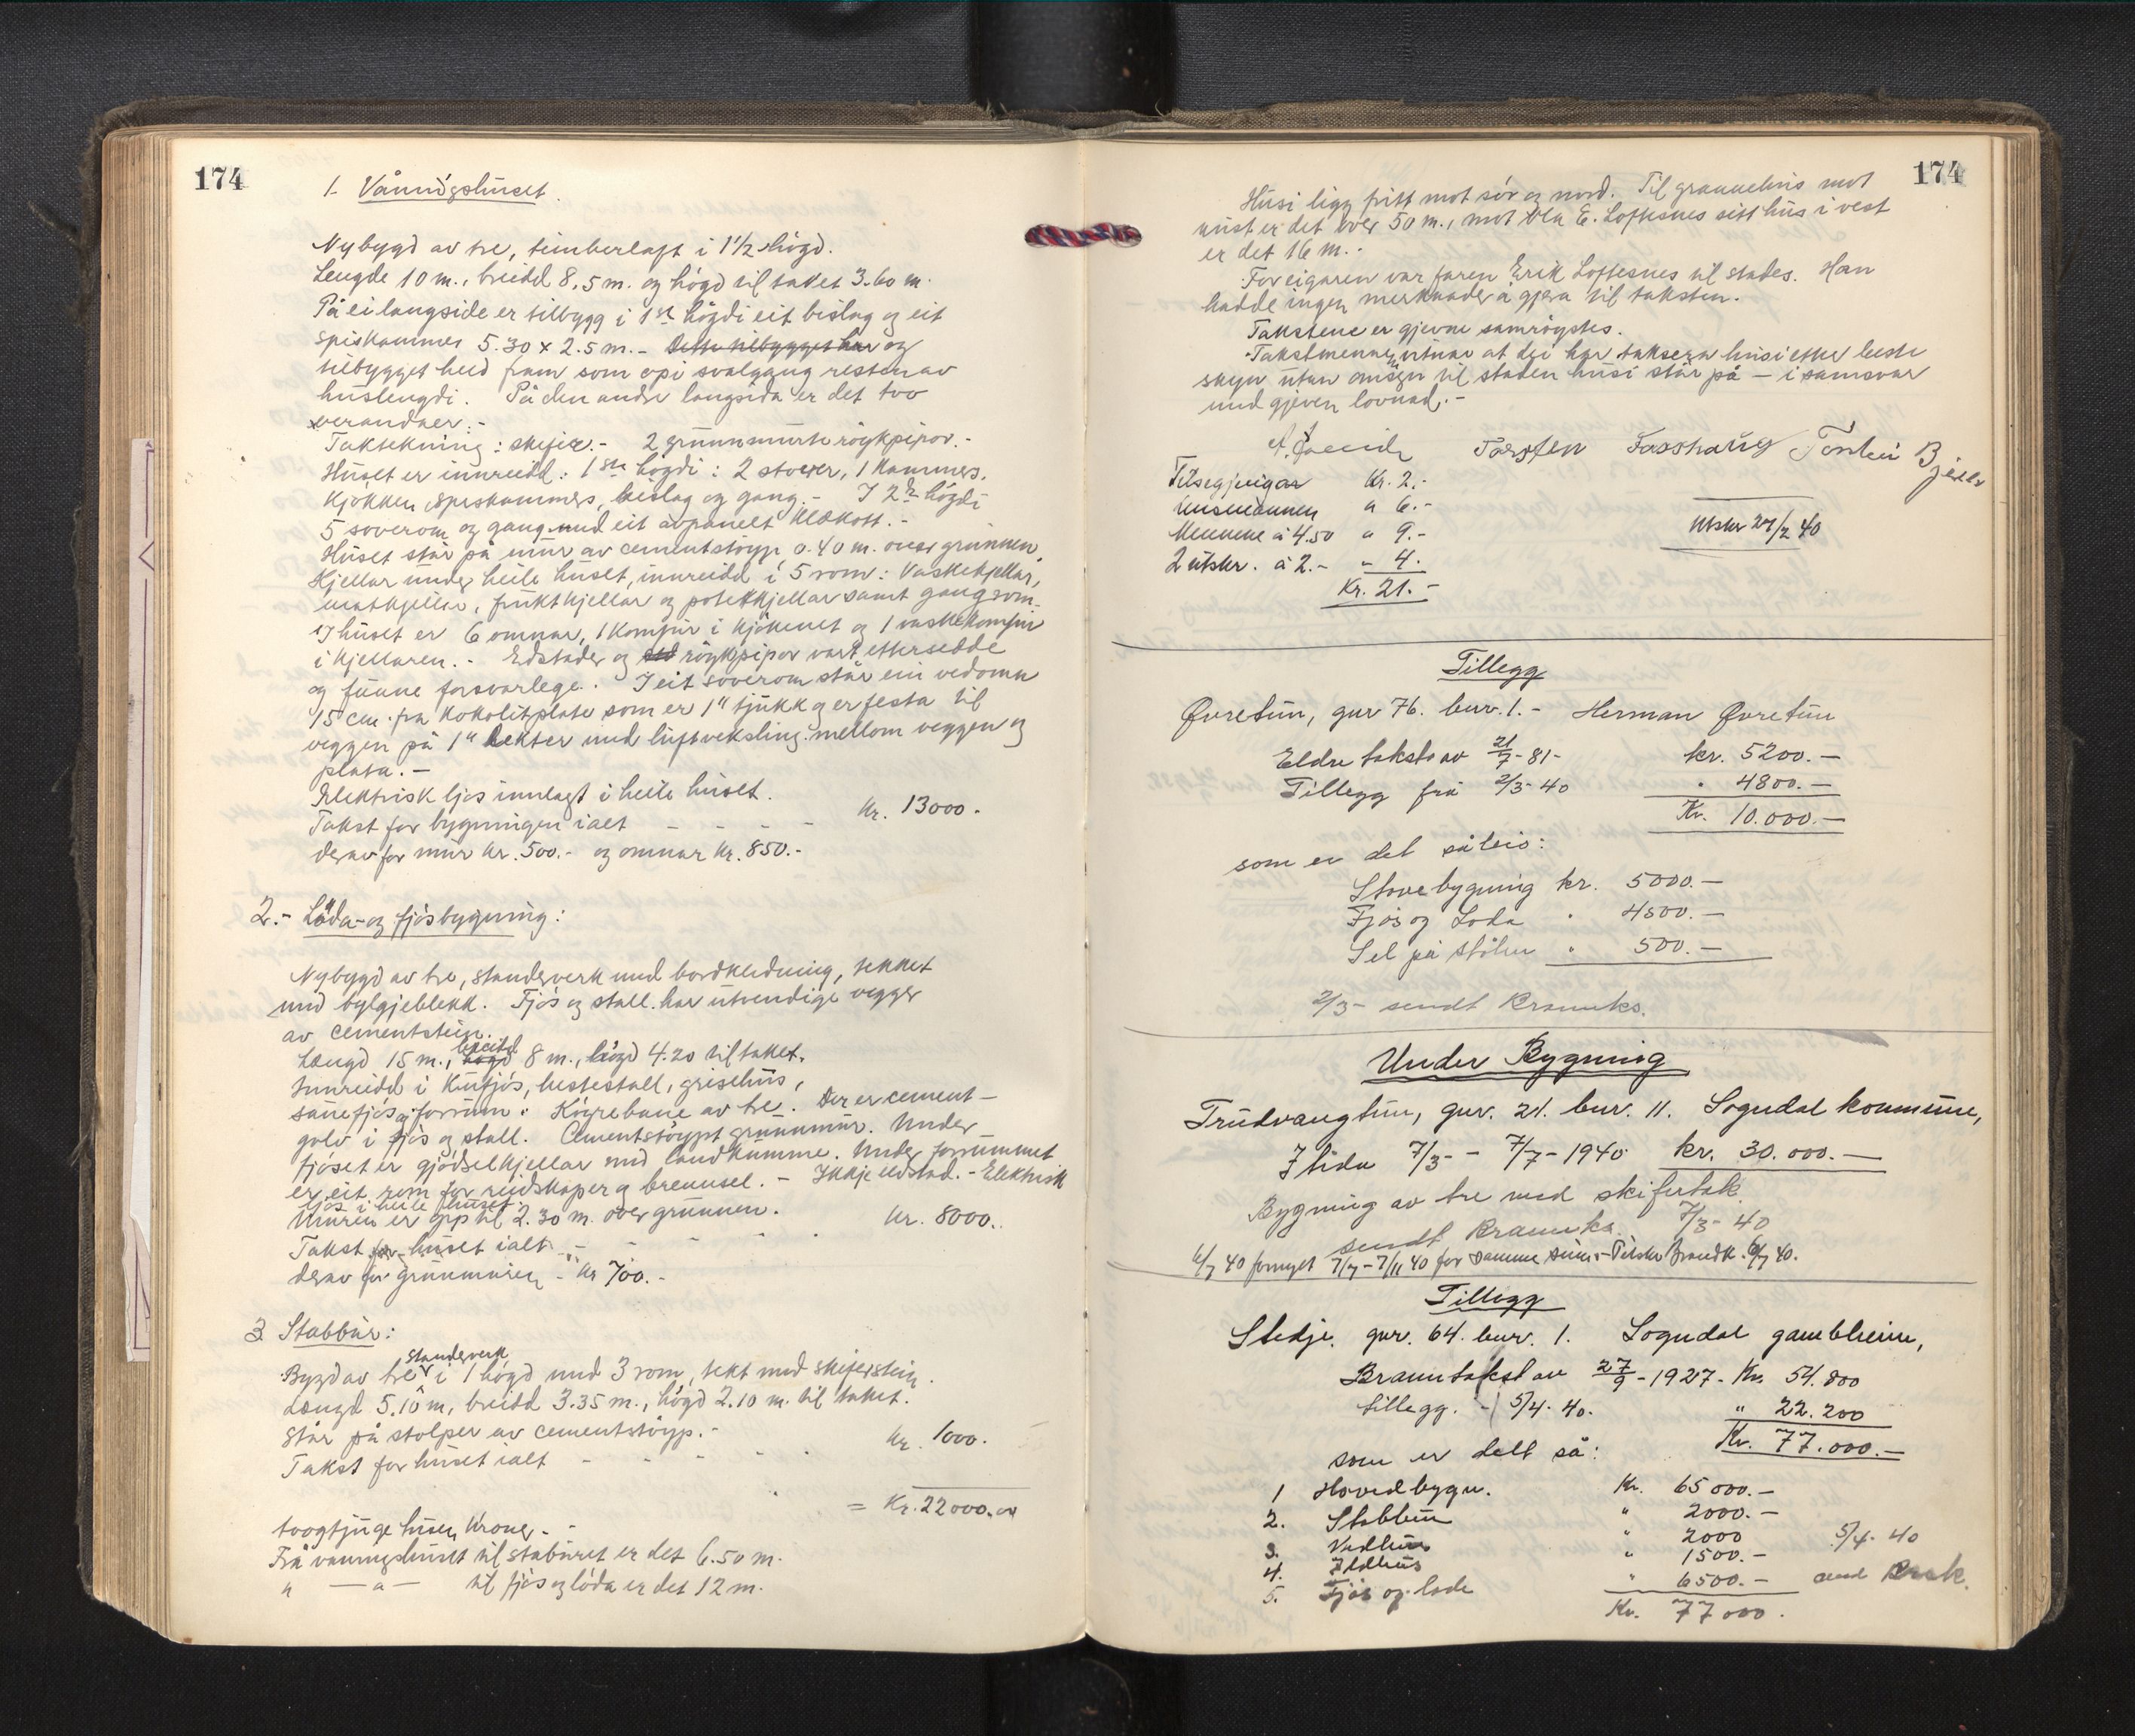 174
1. Våningshuset.
Nybygd av tre, timberlaft i 1 1/2 högd.
Lengde 10 m., breidd 8,5 m. og högd til taket 3.60 m.
På ei langside er tilbygg i 1ste högdi eit bislag og eit
spiskammer 5.30 x 2.5 m. - Dette tilbygget har og
tilbygget heid fram som opi svalgang resten av
huslengdi. På den andre langsida er det två
verandaer. -
Taktekning: skifer. - 2 grunnmurte röykpipor. -
Huset er innreidd: 1ste högdi: 2 stover, 1 kammers,
kjökken, spiskammers, bislag og gang. - I 2dre högdi
5 soverom og gang med eit avpanelt klækott. -
Huset står på mur av cementstöyp 0.40 m. over grunnen.
Kjellar under heile huset, innreidd i 5 rom: Vaskekjellar,
matkjellar, fruktkjellar og potetkjellar samt gangrom.
I huset er 6 omnar, 1 komfur i kjökenet og 1 vaskekomfur
i kjellaren. - Eldstader og röykpipor vart ettersedde
og funne forsvarlege. I eit soverom står ein vedomn
15 cm. frå kokolitplate som er 1" tjukk og er festa til
veggen på 1" lekter med luftveksling mellom veggen og
plata. -
Elektrisk ljos innlagt i heile huset.
Takst for bygningen ialt - - - - Kr. 13000.-
derav for mur kr. 500.- og omnar kr. 850.-
2.- Löda- og fjösbygning:
Nybygd av tre, standerverk med bordkledning, tekket
med bylgjeblekk. Fjös og stall har utvendige vegger
av cementstein.
Lengd 15 m., högd breidd 8 m., högd 4.20 til taket.
Innreidd i kufjös, hestestall, grisehus,
sauefjös og forrum. Köyrebane av tre. Der er cement-
golv i fjös og stall. Cementstöypt grunnmur. Under
fjöset er gjödselkjellar med landkumme. Under forrummet
er eit rom for reidskaper og brennsel. - Ikkje eldstad. - Elektrisk
ljos i heile huset.
Muren er opp til 2.30 m. over grunnen.
Takst for huset ialt - - - - Kr. 8000.
derav for grunnmuren - kr 700.-
3. Stabbur:
Bygd av tre standerverk i 1 högd med 3 rom, tekt med skiferstein.
Lengd 5.10 m, breidd 3.35 m., högd 2.10 m. til taket.
Står på stolper av cementstöyp. -
Takst for huset ialt - - - - Kr. 1000.
= Kr. 22000.00
tvogtjuge tusen kroner. -
Frå våningshuset til staburet er det 6.50 m.
" — " — til fjös og löda er det 12 m.
174
Husi ligg fritt mot sör og nord. Til grannehus mot
aust er det over 50 m., mot Ola E. Loftesnes sitt hus i vest
er det 16 m. -
For eigaren var faren Erik Loftesnes til stades. Han
hadde ingen merknader å gjera til taksten.
Takstene er gjevne samröystes.
Takstmennene vitnar at dei har taksera husi etter beste
skyn utan omsyn til staden husi står på — i samsvar
med gjeven lovnad. -
Torsten
Tilsegjeingar Kr. 2.-
Lensmannen " 6.-
Mennene á 4.50 " 9.-
2 utskr. á 2.- " 4.
Kr. 21.-
Utskr 27/2 40
Tillegg
Øvretun, gnr 76. bnr. 1. - Herman Øvretun
Eldre takst av 21/7-81- kr. 5200.—
Tillegg frå 2/3-40 " 4800.—
Kr. 10.000.—
som er delt såleis:
Stovebygning kr. 5000.—
Fjös og Löda " 4500.—
Sel på stölen " 500.—
2/3- sendt Brannks.
Under Bygning
Trudvangtun, gnr. 21. bnr. 11. Sogndal kommune,
I tida 7/3- - 7/7-1940 kr. 30.000.—
Bygning av tre med skifertak
sendt Brannks. 7/3-40
6/7 40 fornyet 7/7-7/11 40 for samme sum - Tilskr Brandk. 6/7 40.
Tillegg
Stedje. gnr. 64. bnr. 1. Sogndal gamleheim,
Branntakst av 27/9-1927- Kr. 54.800
tillegg. - 5/4-40. " 22.200
Kr. 77.000.—
som er delt så:
1 Hovedbygn. Kr. 65000.—
2. Stabbur " 2000.—
3. Vedhus " 2000
4. Ildhus " 1500.— 5/4-40
5. Fjös og lade " 6500.—
Kr. 77000.